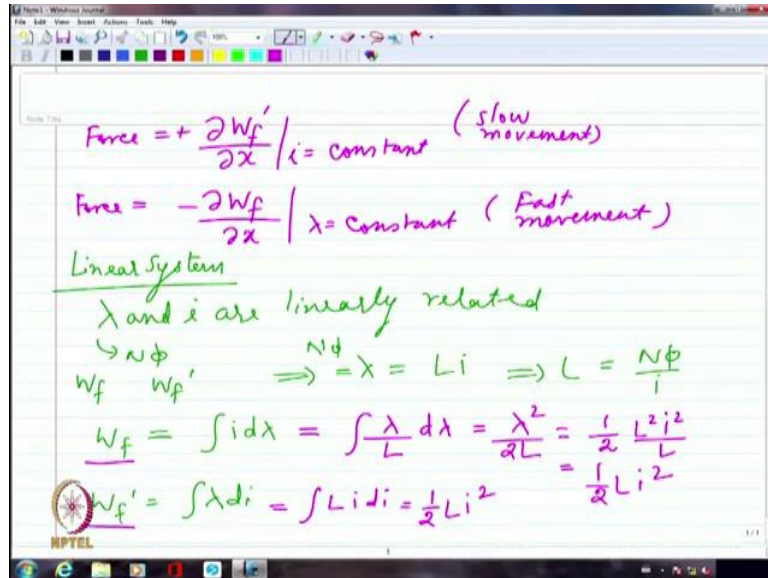 Note1 - Windows Journal
File Edit View Insert Actions Tools Help
100%
B I
Note Title
Force = + ∂Wf'/∂x | i = constant (slow movement)
Force = - ∂Wf/∂x | λ = constant (Fast movement)
Linear System
λ and i are linearly related
↳ Nφ
Wf Wf' ⟹ Nφ = λ = Li ⟹ L = Nφ/i
Wf = ∫ i dλ = ∫ λ/L dλ = λ²/2L = 1/2 L²i²/L
= 1/2 Li²
Wf' = ∫ λ di = ∫ Li di = 1/2 Li²
NPTEL
1/1
1